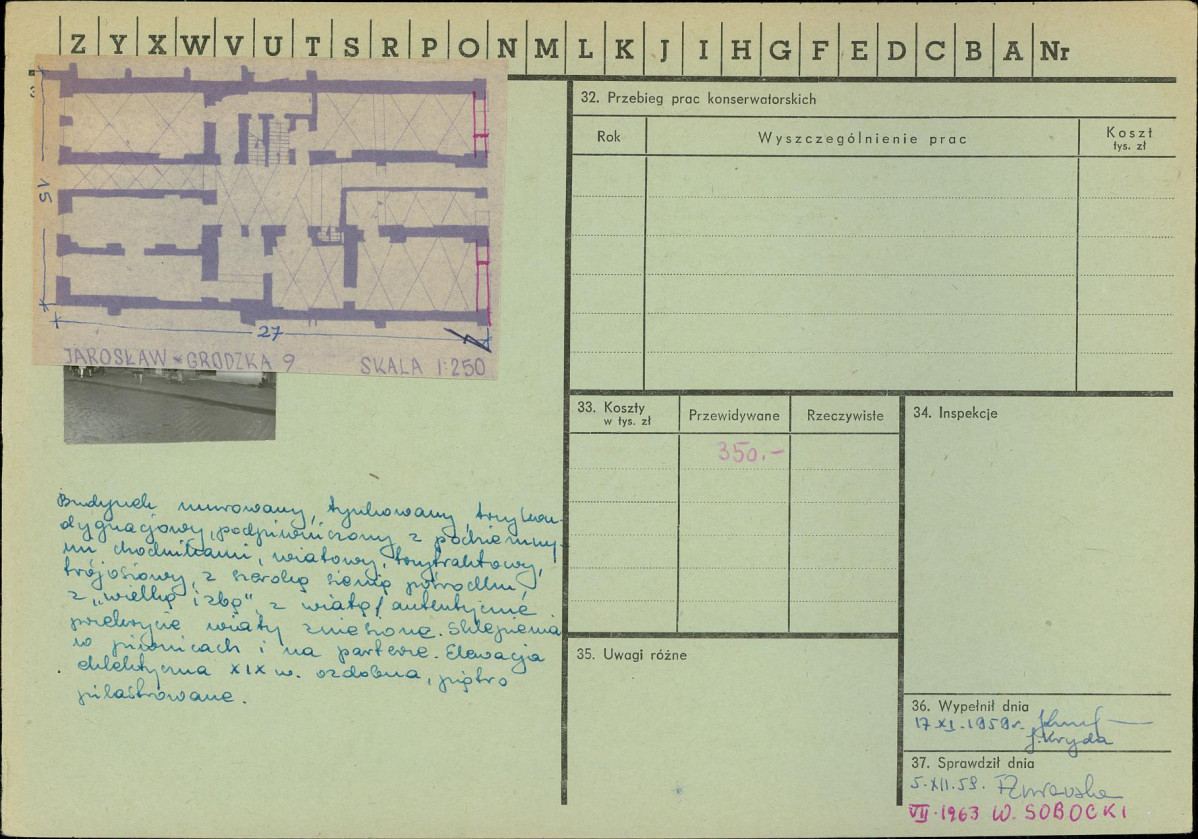 Z Y X W V U T S R P O N M L K J I H G F E D C B A Nr
15
27
JAROSŁAW * GRODZKA 9 SKALA 1:250
Budynek murowany, tynkowany, trzykon-
dygnacjowy, podpiwniczony z podziemny-
mi chodnikami, wiatowy, trzytraktowy,
trójosiowy, z szeroką sienią pośrodku,
z „wielką izbą", z wiatą/autentyczne
przekrycie wiaty zniesione. Sklepienia
w piwnicach i na parterze. Elewacja
eklektyczna XIX w. ozdobna, piętro
pilastrowane.
32. Przebieg prac konserwatorskich
Rok Wyszczególnienie prac Koszt
tys. zł
33. Koszty
w tys. zł
Przewidywane Rzeczywiste
350.-
34. Inspekcje
35. Uwagi różne
36. Wypełnił dnia
17 XI. 1959r.
J. Kryda
37. Sprawdził dnia
5.XII.59.
VII 1963 W. SOBOCKI